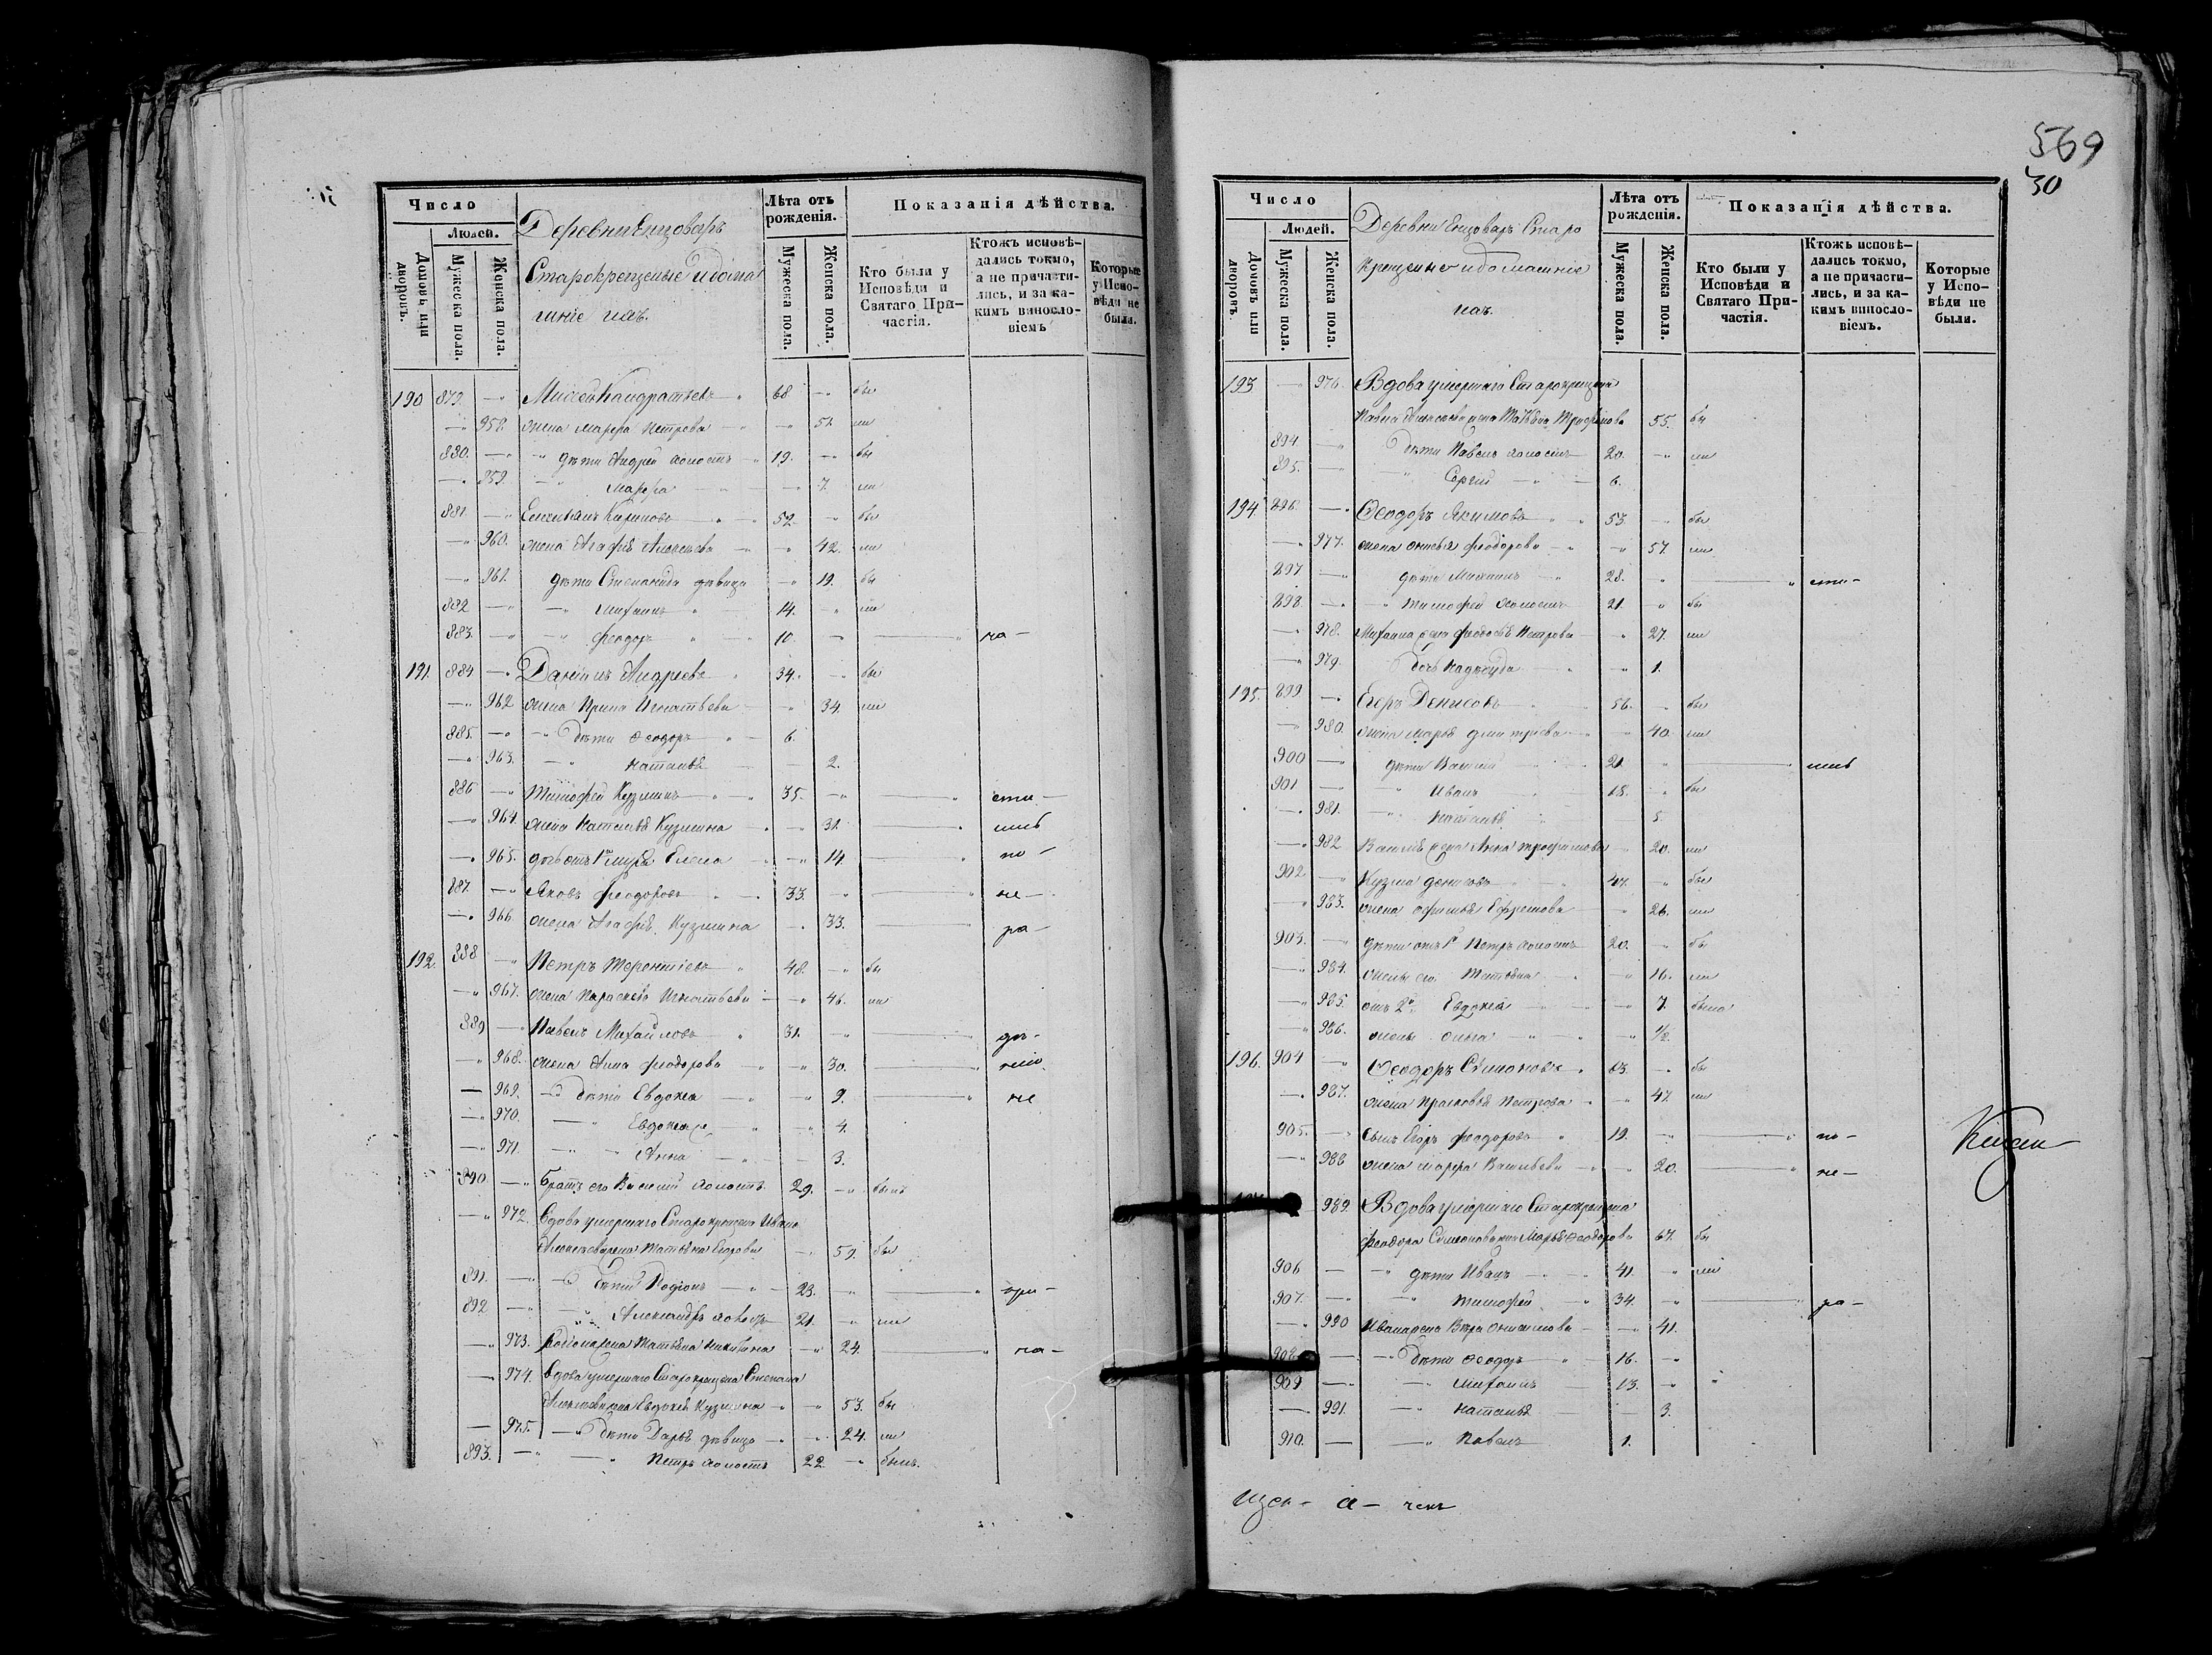 Число
Людей.
Домовъ или дворовъ.
Мужеска пола.
Женска пола.
Деревни Енцоваръ
Старокрещеные и дома
шніе ихъ.
Лѣта отъ рожденія.
Мужеска пола.
Женска пола.
Показанія дѣйства.
Кто были у Исповѣди и Святаго При-частія.
Ктожъ исповѣ-дались токмо, а не причасти-лись, и за ка-кимъ винословіемъ
Которые у Испо-вѣди не были.
190 879. Кандратьевъ 68 бы
958. жена Марфа Петрова 57 ли
880. дѣти Андрей холостъ 19. бы
959. Марфа 7. ли
881. Каримовъ 52. бы
960. жена Агафія Алексѣева 42. ли
961. дѣти Степанида дѣвица 19. бы
882 Михаилъ 14. ли
883. Феодоръ 10. за
191. 884 Даніилъ Андреевъ 34. бы
962 жена Ирина Игнатьева 34. ли
885. дѣти Феодоръ 6.
963. Наталья 2.
886 Тимофей Кузминъ 35.
964. жена Наталья Кузмина 31.
965. дочь отъ 1го мужа Елена 14 по
887. Яковъ Феодоровъ 33. не
966. жена Агафія Кузмина 33. ра
192. 888 Петръ Терентіевъ 48. бы
967. жена Параскева Игнатьева 46. ли
889 Павелъ Михайловъ 31.
968. жена Анна Феодорова 30.
969. дѣти Евдокея 9. не
970. Евдокея 4.
971. Анна 3.
890. братъ его Василій холостъ 29. былъ
972. Вдова умершаго Старокрещена Ивана
Алексѣева жена Татьяна Егорова 59. бы
891. дѣти Родіонъ 23. при
892 Александръ холостъ 21. ли
973. Родіона жена Татьяна Никитина 24. ча
974. Вдова умершаго Старокрещена Степана
Алексѣева жена Евдокея Кузмина 53. бы
975. дѣти Дарья дѣвица 24. ли
893. Петръ холостъ 22 былъ.
569
30
Число
Людей.
Домовъ или дворовъ.
Мужеска пола.
Женска пола.
Деревни Енцоваръ Старо
крещеные и домашніе
ихъ.
Лѣта отъ рожденія.
Мужеска пола.
Женска пола.
Показанія дѣйства.
Кто были у Исповѣди и Святаго При-частія.
Ктожъ исповѣ-дались токмо, а не причасти-лись, и за ка-кимъ винословіемъ.
Которые у Испо-вѣди не были.
193 976. Вдова умершаго Старокрещена
жена Татьяна Трофимова 55. бы
894. дѣти Павелъ холостъ 20. ли
895. Сергей 6.
194. 896. Феодоръ Якимовъ 53. бы
977. жена Феодорова 57. ли
897. дѣти Михаилъ 28.
898. Тимофей холостъ 21. бы
978. Михаила жена Федосья Петрова 27. ли
979. дочь Надежда 1.
195. 899 Егоръ Денисовъ 56. бы
980. жена Марья Дмитріева 40. ли
900 дѣти Василій 21
901 Иванъ 18. бы
981. Наталья 5
982 Василья жена Анна Трофимова 20. ли
902. Кузма Денисовъ 47. бы
983. жена Офимья Ефремова 26. ли
903. дѣти отъ 1й Петръ холостъ 20. бы
984. жена его Татьяна 16. ли
985. отъ 2й Евдокея 7. была
986. жены 1/2
196. 904 Феодоръ Семоновъ 63. бы
987. жена Прасковья Петрова 47. ли
905. сынъ Егоръ Феодоровъ 19. по
988 жена Марфа Васильева 20. не
989. Вдова умершаго Старокрещена
Феодора Семенова жена Марья Феодорова 67. бы
906 дѣти Иванъ 41. ли
907. Тимофей 34. ра
990 Ивана жена Вера 41.
908. дѣти Феодоръ 16.
909 Михаилъ 13.
991. Наталья 3.
910. Павелъ 1.
щен- а- никъ